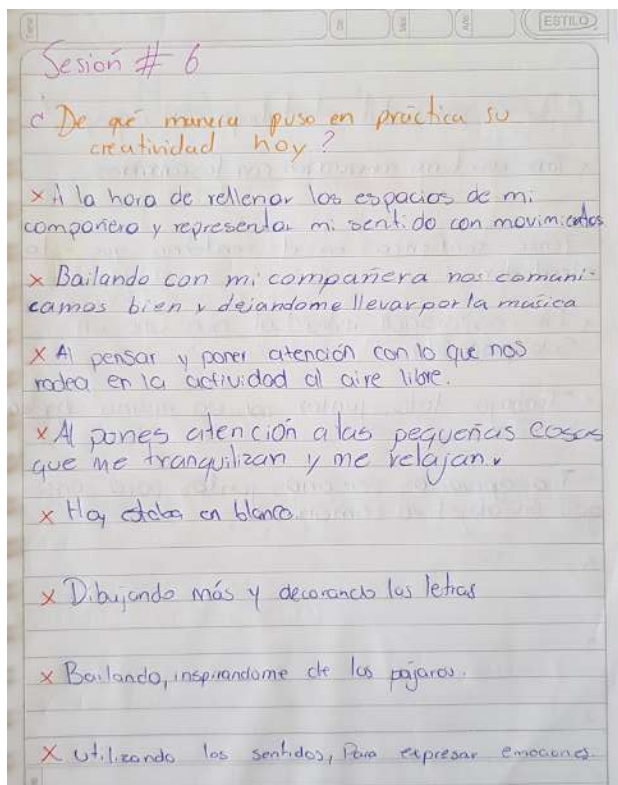 ESTILO
Sesión # 6
¿De qué manera puso en práctica su
creatividad hoy?
x A la hora de rellenar los espacios de mi
compañero y representar mi sentido con movimientos
x Bailando con mi compañera nos comuni-
camos bien y dejandome llevar por la música
x Al pensar y poner atención con lo que nos
rodea en la actividad al aire libre.
x Al pones atención a las pequeñas cosas
que me tranquilizan y me relajan.
x Hoy estaba en blanco.
x Dibujando más y decorando las letras
x Bailando, inspirandome de los pájaros.
x Utilizando los sentidos, Para expresar emociones.